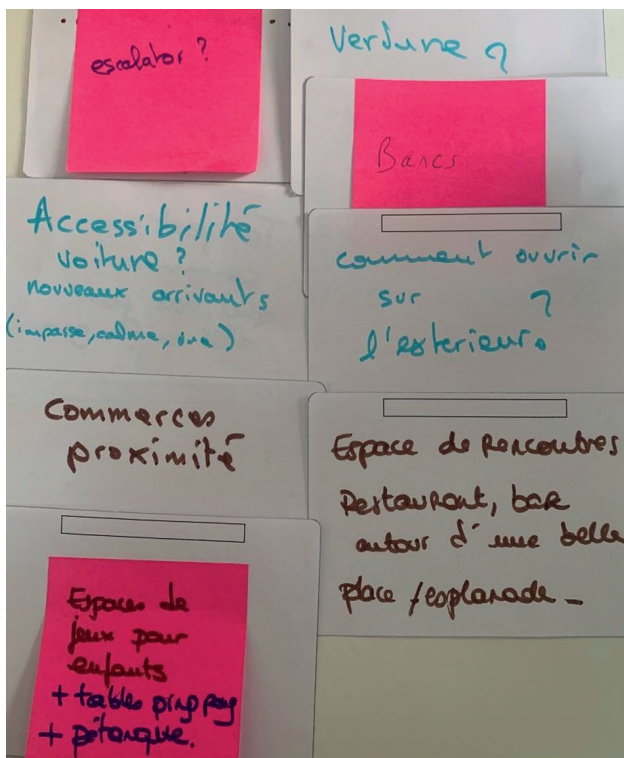 escalator ?
Verdure ?
Bancs
Accessibilité
voiture ?
nouveaux arrivants
(impasse, calme, rue)
comment ouvrir
sur ?
l'exterieur.
Commerces
proximité
Espace de Rencontres
Restaurant, bar
autour d'une belle
place / esplanade -
Espaces de
jeux pour
enfants
+ tables ping pong
+ pétanque.